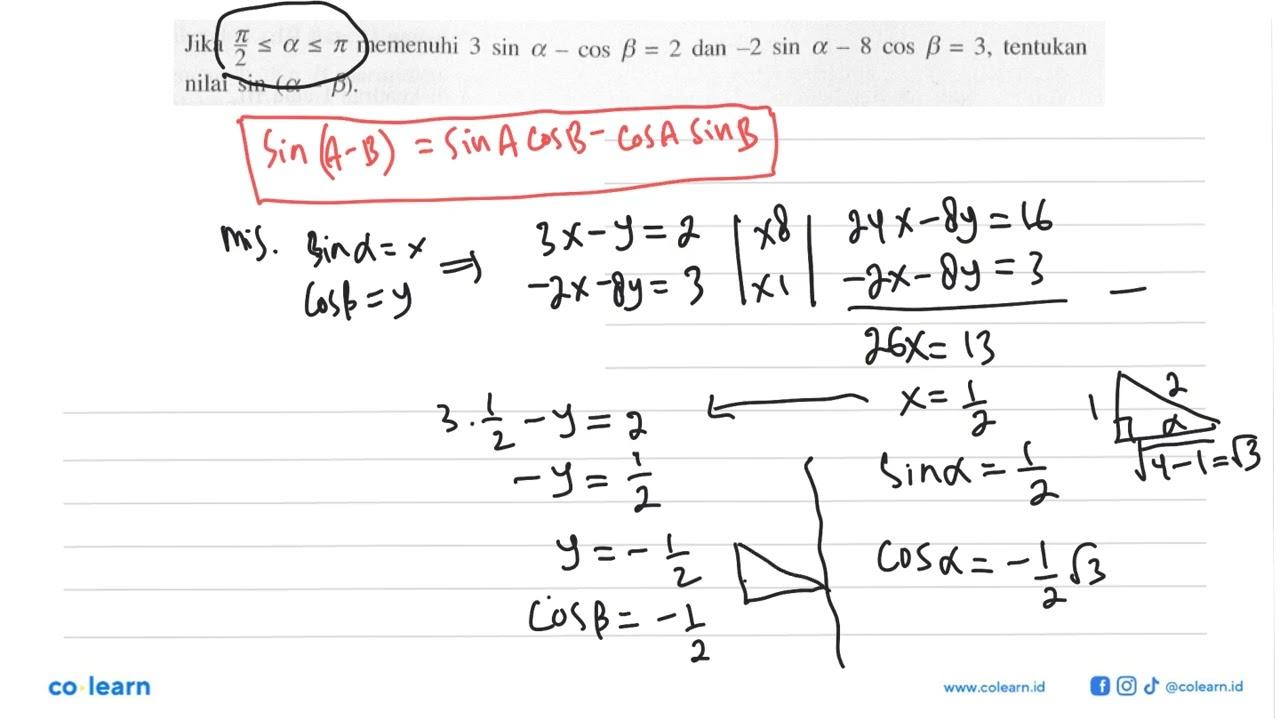 Jika π/2 ≤ α ≤ π memenuhi 3 sin α – cos β = 2 dan –2 sin α – 8 cos β = 3, tentukan
nilai sin (α – β).
Sin (A-B) = Sin A Cos B - Cos A Sin B
mis. Sin α = x ⇒ 3x - y = 2 | x8 | 24x - 8y = 16
Cos β = y -2x - 8y = 3 | x1 | -2x - 8y = 3 —
26x = 13
3 · 1/2 - y = 2 ← x = 1/2
1 2 α √4-1 = √3
- y = 1/2 Sin α = 1/2
y = - 1/2 Cos α = - 1/2 √3
Cos β = - 1/2
co learn www.colearn.id @colearn.id